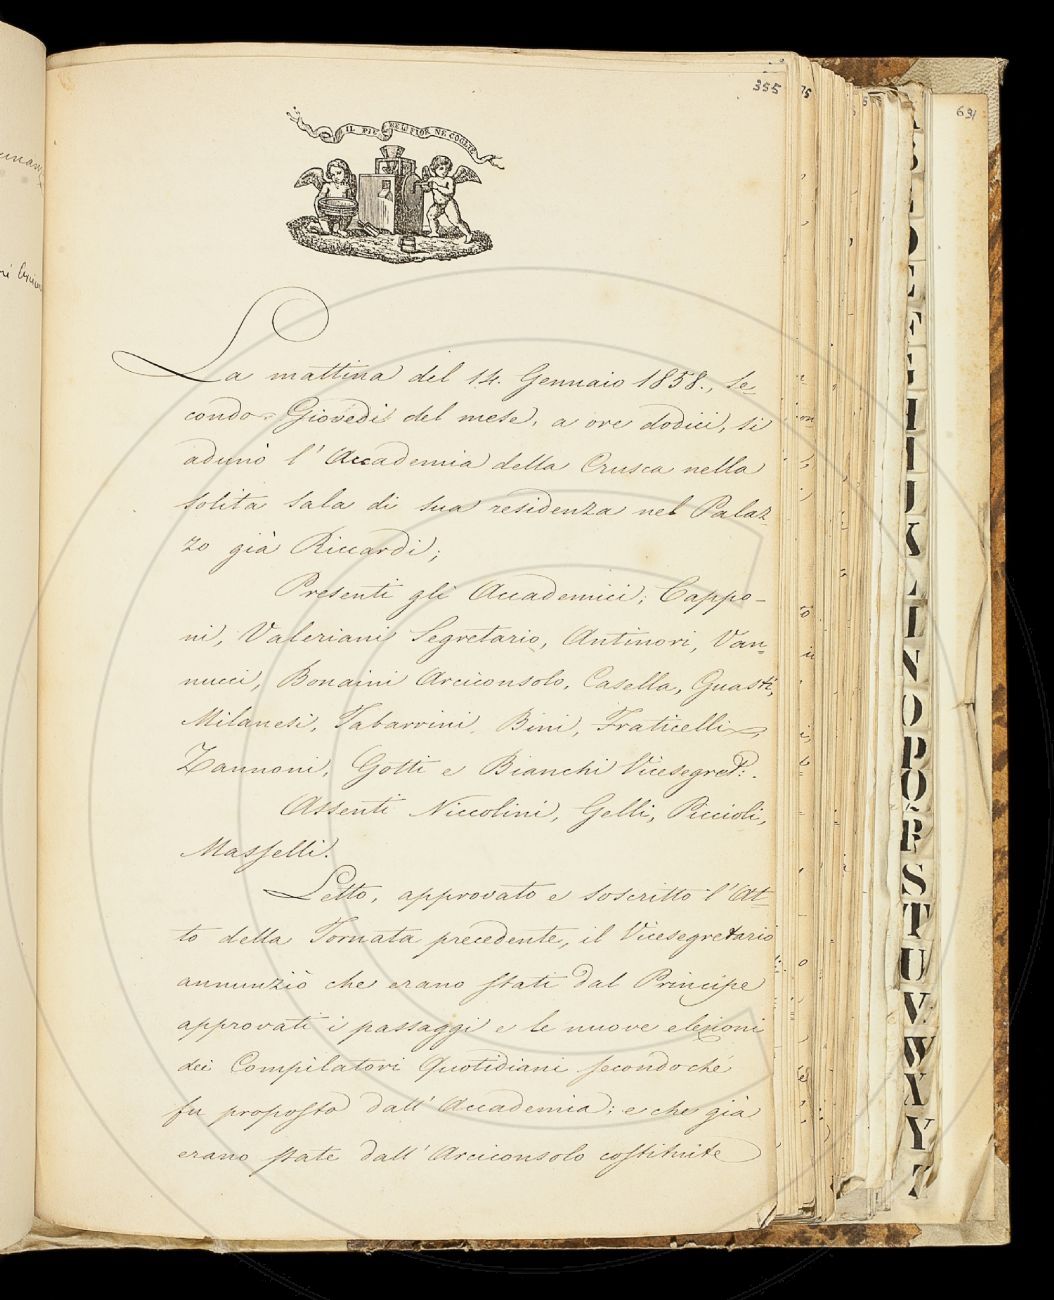 355
75
5
691
IL PIÙ BEL FIOR NE COGLIE
La mattina del 14. Gennaio 1858., se-
condo Giovedì del mese, a ore dodici, si
adunò l' Accademia della Crusca nella
solita sala di sua residenza nel Palaz-
zo già Riccardi;
Presenti gli Accademici; Cappo-
ni, Valeriani Segretario, Antinori, Van-
nucci, Bonaini Arciconsolo, Casella, Guasti,
Milanesi, Tabarrini, Bini, Fraticelli,
Zannoni, Gotti e Bianchi Vicesegret:.
Assenti Niccolini, Gelli, Piccioli,
Masselli.
Letto, approvato e soscritto l' At-
to della Tornata precedente, il Vicesegretario
annunziò che erano stati dal Principe
approvati i passaggi e le nuove elezioni
dei Compilatori Quotidiani secondoché
fu proposto dall' Accademia; e che già
erano state dall' Arciconsolo costituite
D
E
F
G
H
I
J
K
L
N
O
P
Q
R
S
T
U
V
W
X
Y
Z